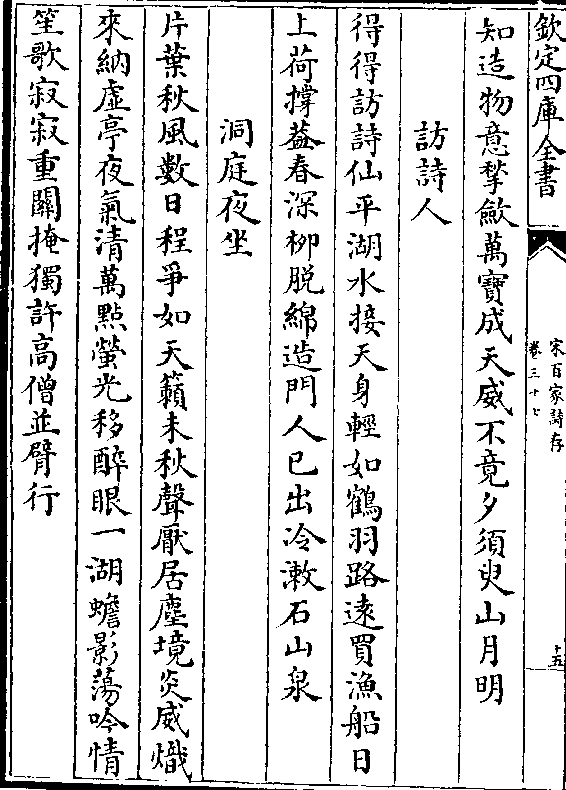 欽定四庫全書
宋百家詩存
卷三十七
十五
知造物意摯歛萬寶成天威不竟夕須臾山月明
訪詩人
得得訪詩仙平湖水接天身輕如鶴羽路遠買漁船日
上荷撐葢春深柳脱綿造門人已出冷漱石山泉
洞庭夜坐
片葉秋風數日程爭如天籟未秋聲厭居塵境炎威熾
來納虚亭夜氣清萬㸃螢光移醉眼一湖蟾影蕩吟情
笙歌寂寂重關掩獨許高僧並臂行